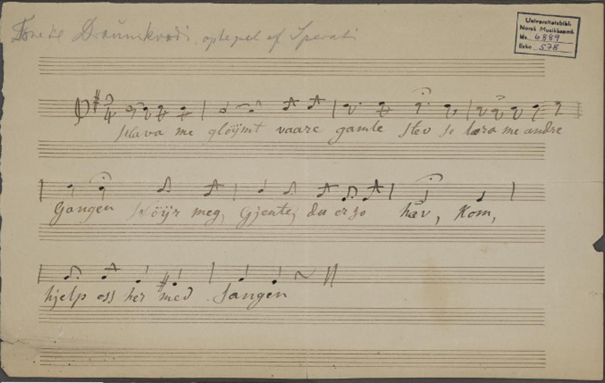 Draumkvædi, optegnet af Sperati
Universitetsbibl.
Norsk Musikksaml.
Ms. 6889
Eske 578
Hava me gløymt vaare gamle Stev so læra me andre
Gangen meg, Gjente, du er so hæv, Kom,
hjelp oss her med Sangen